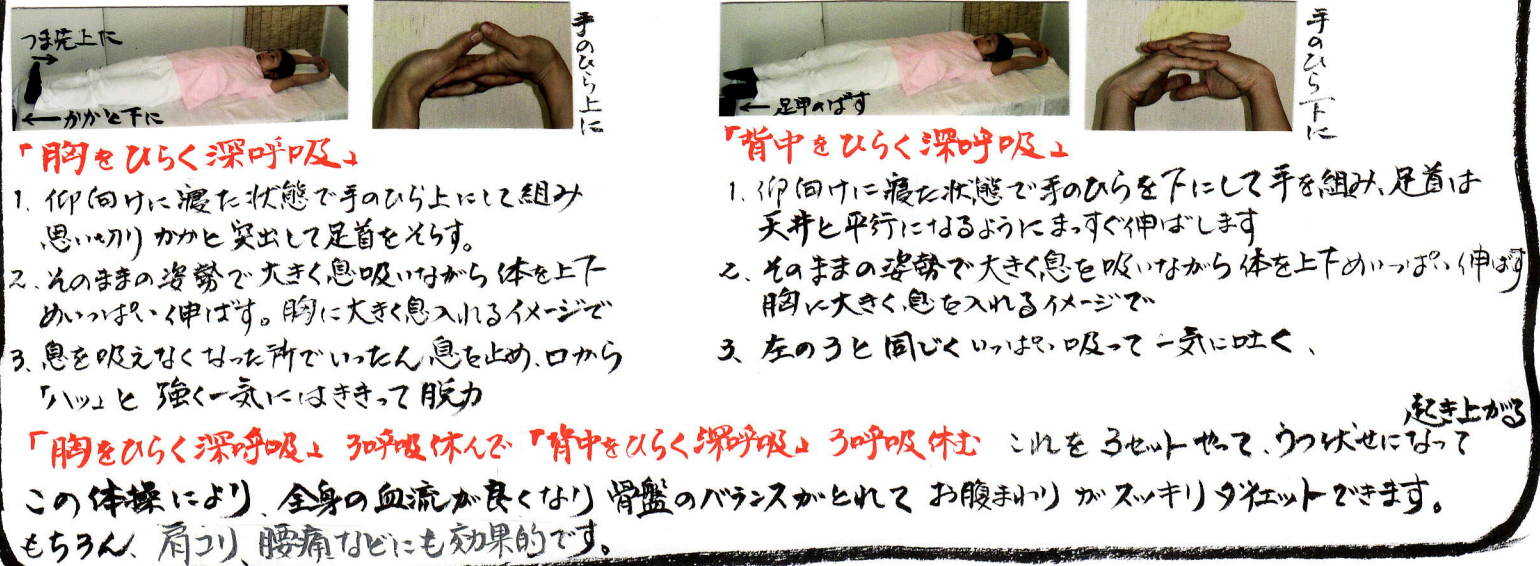 つま先上に
かかと下に
手のひら上に
「胸をひらく深呼吸」
1. 仰向けに寝た状態で手のひら上にして組み
思い切りかかと突出して足首をそらす。
2. そのままの姿勢で大きく息吸いながら体を上下
めいっぱい伸ばす。胸に大きく息入れるイメージで
3. 息を吸えなくなった所でいったん息を止め、口から
「ハッ」と強く一気にはききって脱力
足甲のばす
手のひら下に
「背中をひらく深呼吸」
1. 仰向けに寝た状態で手のひらを下にして手を組み、足首は
天井と平行になるようにまっすぐ伸ばします
2. そのままの姿勢で大きく息を吸いながら体を上下めいっぱい伸ばす
胸に大きく息を入れるイメージで
3. 左の3と同じくいっぱい吸って一気に吐く、
「胸をひらく深呼吸」3呼吸休んで「背中をひらく深呼吸」3呼吸休む これを3セットやって、うつ伏せになって
起き上がる
この体操により、全身の血流が良くなり骨盤のバランスがとれてお腹まわりがスッキリダイエットできます。
もちろん、肩コリ、腰痛などにも効果的です。